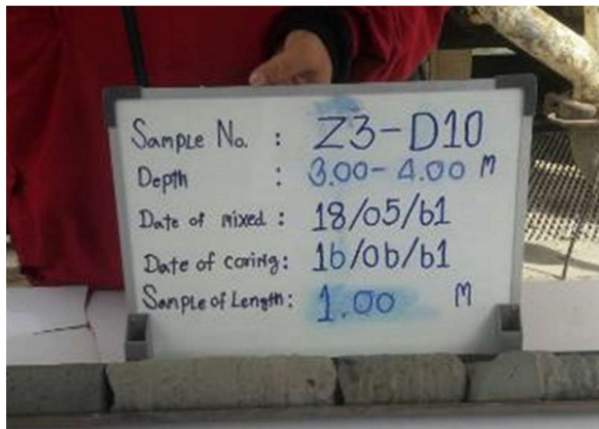 Sample No. : Z3-D10
Depth : 3.00-4.00 M
Date of mixed : 18/05/61
Date of coring: 16/06/61
Sample of Length: 1.00 M